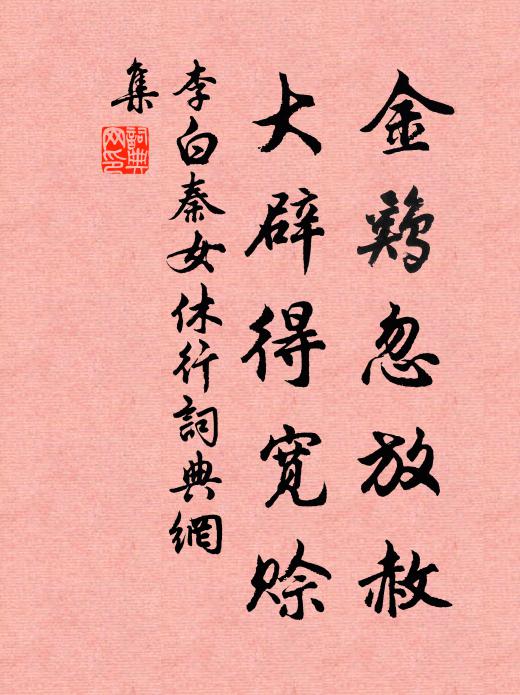 金鷄忽放赦
大辟得寛賒
李白秦女休行詞典網
集
詞典網印